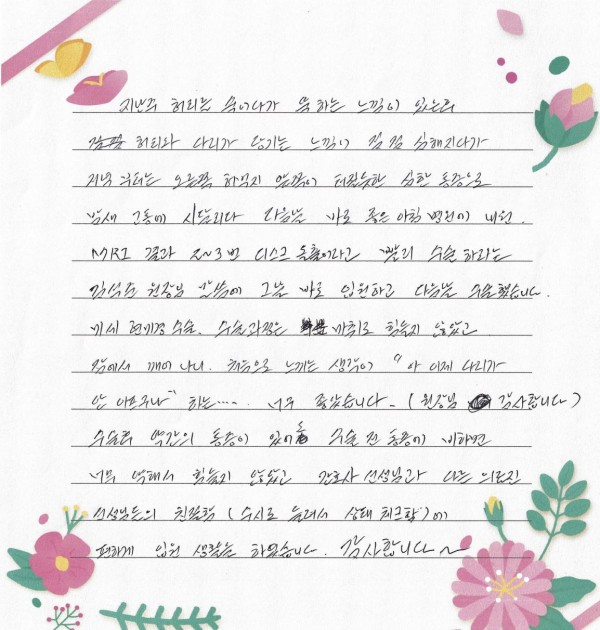 지난주 허리를 숙이다가 뚝하는 느낌이 있은후
점점 허리와 다리가 당기는 느낌이 점점 심해지다가
저녁 부터는 오른쪽 허벅지 앞쪽이 터질듯한 심한 통증으로
밤새 고통에 시달리다 다음날 바로 좋은아침병원에 내원.
MRI 결과 2~3번 디스크 돌출이라고 빨리 수술하라는
원장님 말씀에 그날 바로 입원하고 다음날 수술했습니다.
미세 현미경 수술. 수술과정은 마취로 힘들지 않았고
잠에서 깨어나니. 처음으로 느끼는 생각이 "아 이제 다리가
안 아프구나" 하는····. 너무 좋았습니다. (원장님 감사합니다)
수술후 약간의 통증이 있어도 수술 전 통증에 비하면
너무 약해서 힘들지 않았고 간호사 선생님과 다른 의료진
선생님들의 친절함 (수시로 들려서 상태 체크함)에
편하게 입원 생활을 하였습니다. 감사합니다~